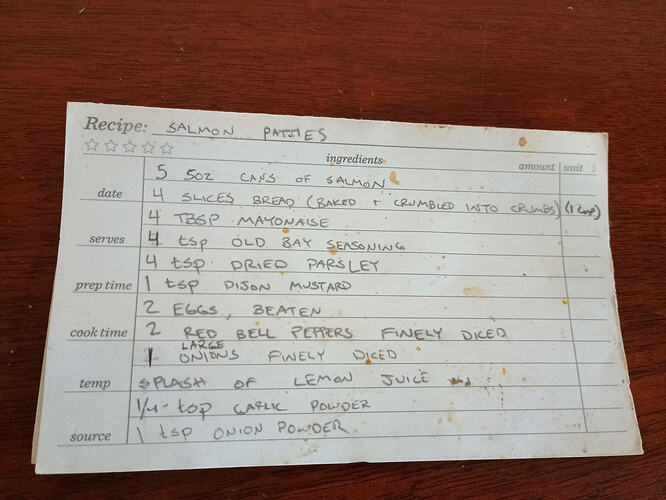 Recipe: SALMON PATTIES
ingredients amount unit
5 5oz CANS OF SALMON
date 4 SLICES BREAD (BAKED + CRUMBLED INTO CRUMBS) (1 cup)
4 TBSP MAYONAISE
serves 4 tsp OLD BAY SEASONING
4 tsp DRIED PARSLEY
prep time 1 tsp DIJON MUSTARD
2 EGGS, BEATEN
cook time 2 RED BELL PEPPERS FINELY DICED
1 LARGE ONIONS FINELY DICED
temp SPLASH OF LEMON JUICE
1/4 tsp GARLIC POWDER
source 1 tsp ONION POWDER